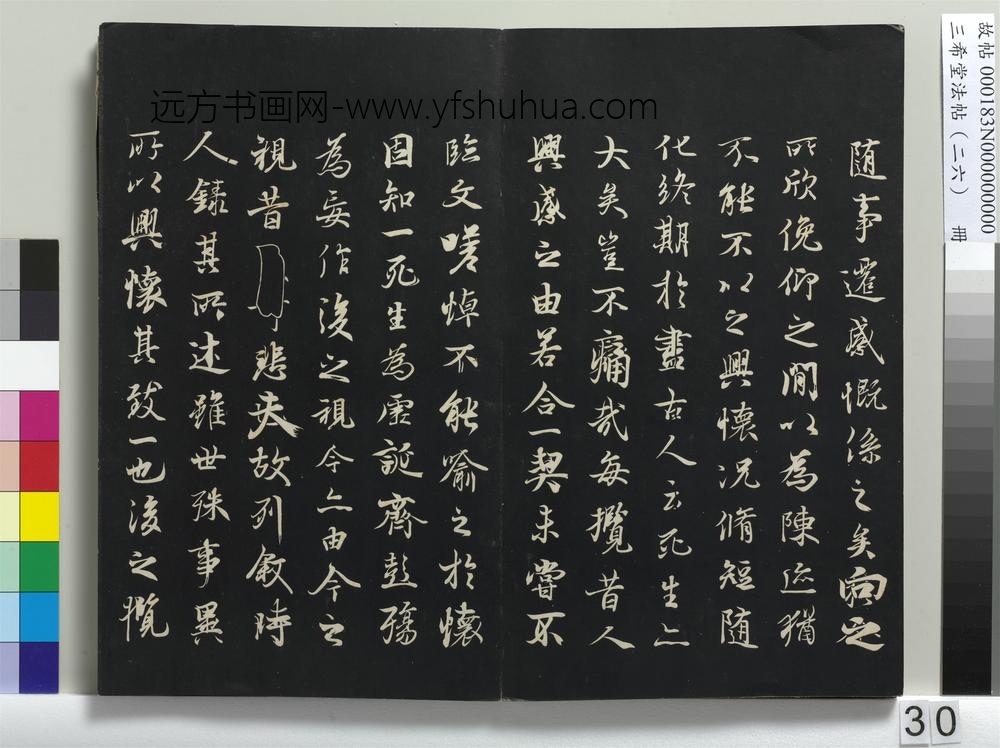 远方书画网-www.yfshuhua.com
随事遷感慨係之矣向之
所欣俛仰之閒以為陳迹猶
不能不以之興懷况脩短随
化終期於盡古人云死生亦
大矣豈不痛哉每攬昔人
興感之由若合一契未嘗不
臨文嗟悼不能喻之於懷
固知一死生為虛誕齊彭殤
為妄作後之視今亦由今之
視昔悲夫故列敘時
人錄其所述雖世殊事異
所以興懷其致一也後之攬
故帖 000183N000000000
三希堂法帖（二六） 冊
30